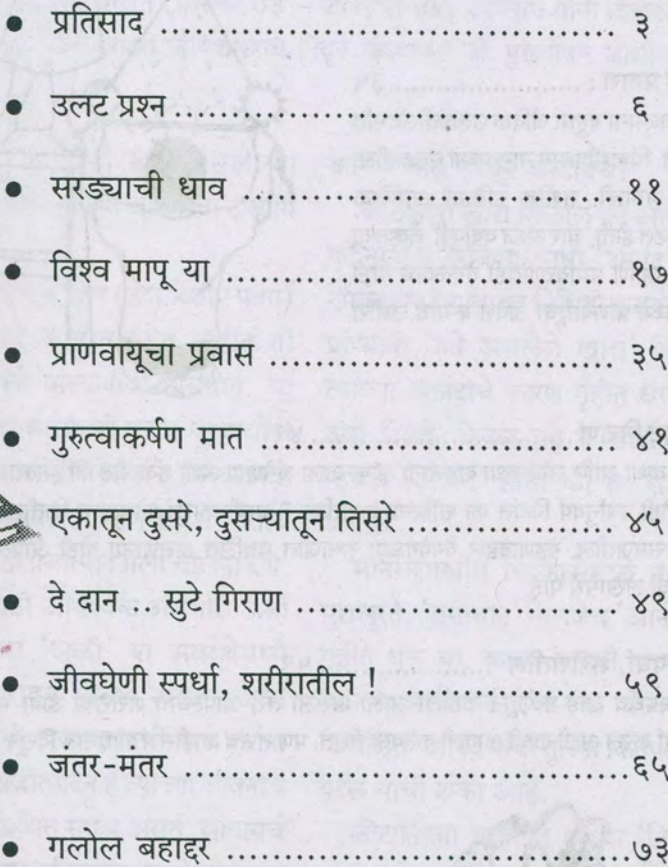 • प्रतिसाद ................................................ ३
• उलट प्रश्न ............................................. ६
• सरड्याची धाव ...................................... ११
• विश्व मापू या ........................................ १७
• प्राणवायूचा प्रवास .................................. ३५
• गुरुत्वाकर्षण मात ................................... ४१
एकातून दुसरे, दुसऱ्यातून तिसरे .................. ४५
• दे दान .... सुटे गिराण ............................. ४९
• जीवघेणी स्पर्धा, शरीरातील ! .................... ५९
• जंतर-मंतर ............................................ ६५
• गलोल बहाद्दर ........................................ ७३